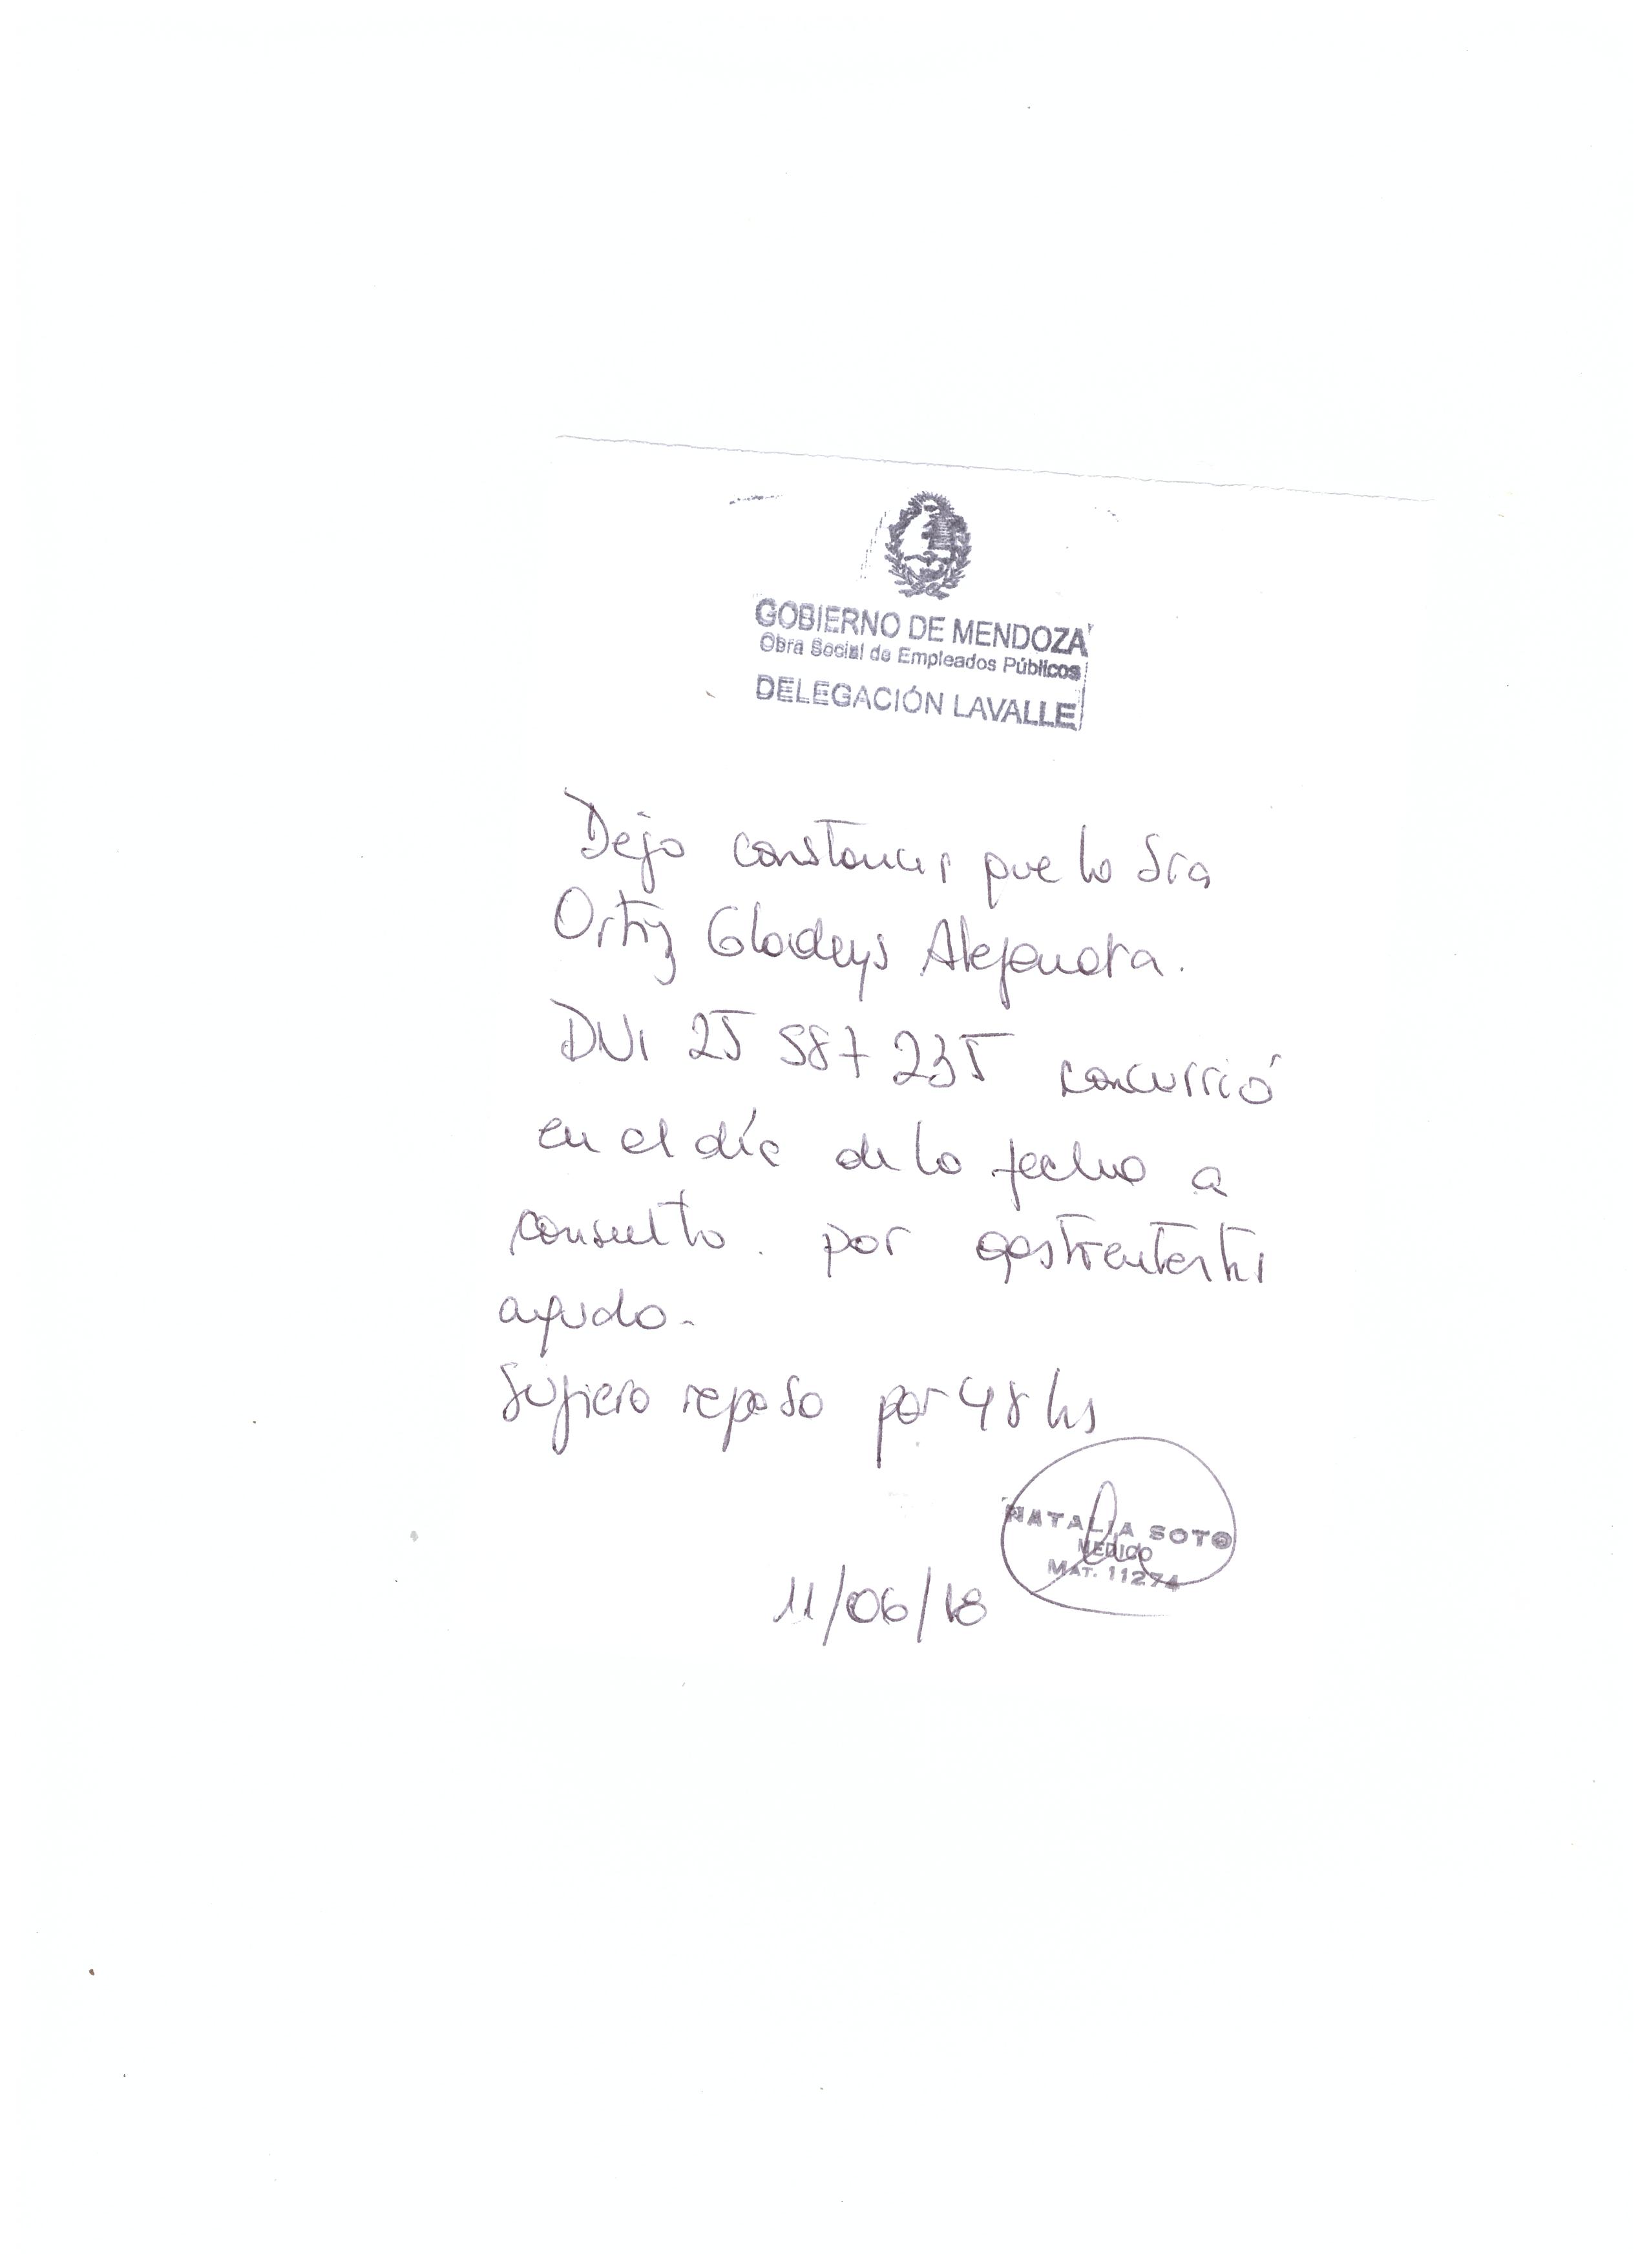 GOBIERNO DE MENDOZA
Obra Social de Empleados Públicos
DELEGACIÓN LAVALLE
Dejo constancia que la Sra
Ortiz Gladys Alejandra.
DNI 25 587 235 concurrió
en el día de la fecha a
consulta. por gastroenteritis
aguda.
Sugiero reposo por 48 hs
NATALIA SOTO
MEDICO
MAT. 11274
11/06/18